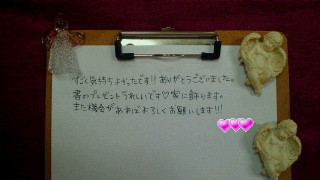 すごく気持ちよかったです!! ありがとうございました。
書のプレゼントうれしいです♡家に飾ります。
また機会があればよろしくお願いします!!!